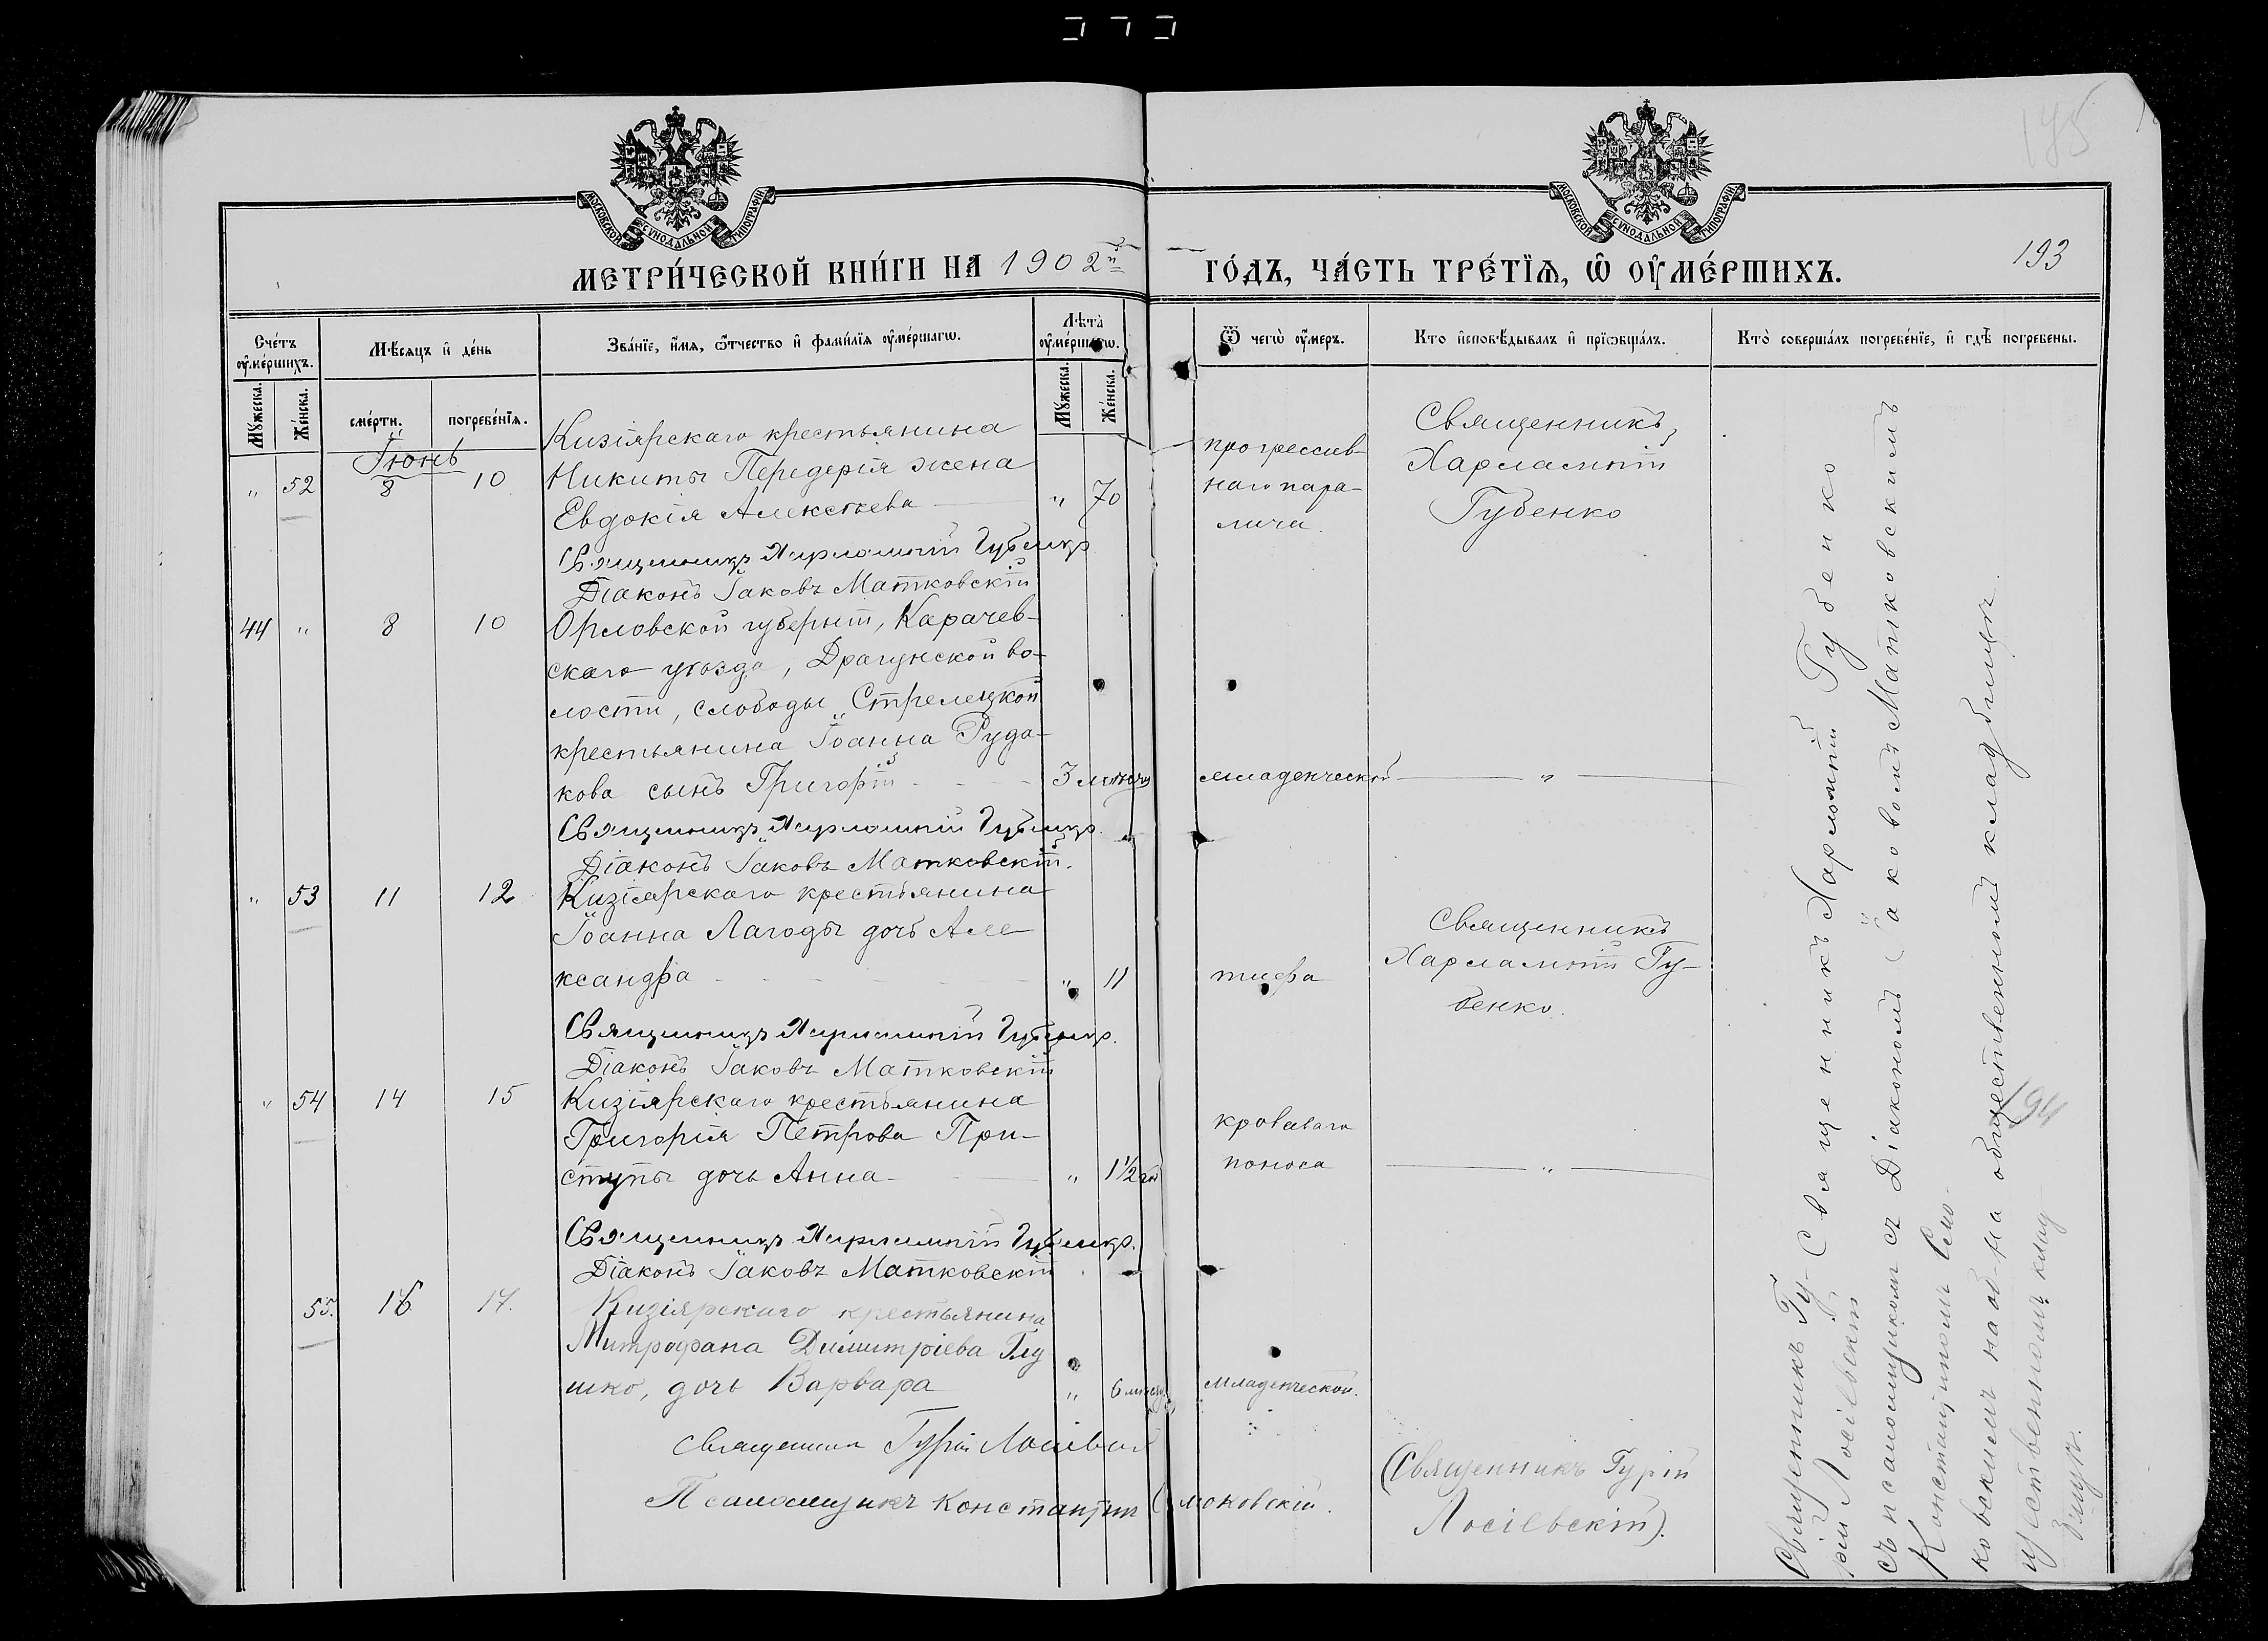 МОСКОВСКОЙ СУНОДАЛЬНОЙ ТИПОГРАФІИ
МОСКОВСКОЙ СУНОДАЛЬНОЙ ТИПОГРАФІИ
185
193
МЕТРИ́ЧЕСКОЙ КНИ́ГИ НА 1902й ГО́ДЪ, ЧА́СТЬ ТРЕ́ТІѦ, Ѡ҆ ОУ҆МЕ́РШИХЪ.
Сче́тъ оу҆ме́ршихъ.
Мѣ́сяцъ и҆ де́нь
Зва́нїе, и҆́мя, ѻ҆́тчество и҆ фами́лїя оу҆ме́ршагѡ.
Лѣта̀ оу҆ме́ршагѡ.
Ѿ чегѡ̀ оу҆́меръ.
Кто и҆сповѣ́дывалъ и҆ прїѡбща́лъ.
Кто̀ соверша́лъ погребе́нїе, и҆ гдѣ̀ погребены.
Му́жеска.
Же́нска.
сме́рти.
погребе́нїя.
Му́жеска.
Же́нска.
Іюнь
Кизіярскаго крестьянина
" 52 8 10 Никиты Передерія жена
Евдокія Алексѣева " 70
прогрессив-
наго пара-
лича.
Священникъ
Харлампій
Губенко
Священникъ Харлампій Губенко
Діаконъ Іаковъ Матковскій
44 " 8 10 Орловской губерніи, Карачев-
скаго уѣзда, Драгунской во-
лости, слободы Стрелецкой
крестьянина Іоанна Руда-
кова сынъ Григорій 3 мѣсяц
младенческой "
Священникъ Харлампій Губенко.
Діаконъ Іаковъ Матковскій.
" 53 11 12 Кизіярскаго крестьянина
Іоанна Лагоды дочь Але-
ксандра " 11
тифа
Священникъ
Харлампій Гу-
бенко.
Священникъ Харлампій Губенко.
Діаконъ Іаковъ Матковскій
" 54 14 15 Кизіярскаго крестьянина
Григорія Петрова При-
ступы дочь Анна " 1½ год
кроваваго
поноса "
Священникъ Харлампій Губенко.
Діаконъ Іаковъ Матковскій
55. 16 17. Кизіярскаго крестьянина
Митрофана Димитріева Глу
шко, дочь Варвара " 6 мѣсяц.
младенческой.
Священникъ Гурій Лосіевскій
Псаломщикъ Константинъ Смоковскій.
(Священникъ Гурій
Лосіевскій).
Священникъ Харлампій Губенко
съ Діакономъ Іаковомъ Матковскимъ
на общественномъ кладбищѣ.
194
Священникъ Гу-
рій Лосіевскій
съ псаломщикомъ
Константиномъ Смо-
ковскимъ на об-
щественномъ клад-
бищѣ.